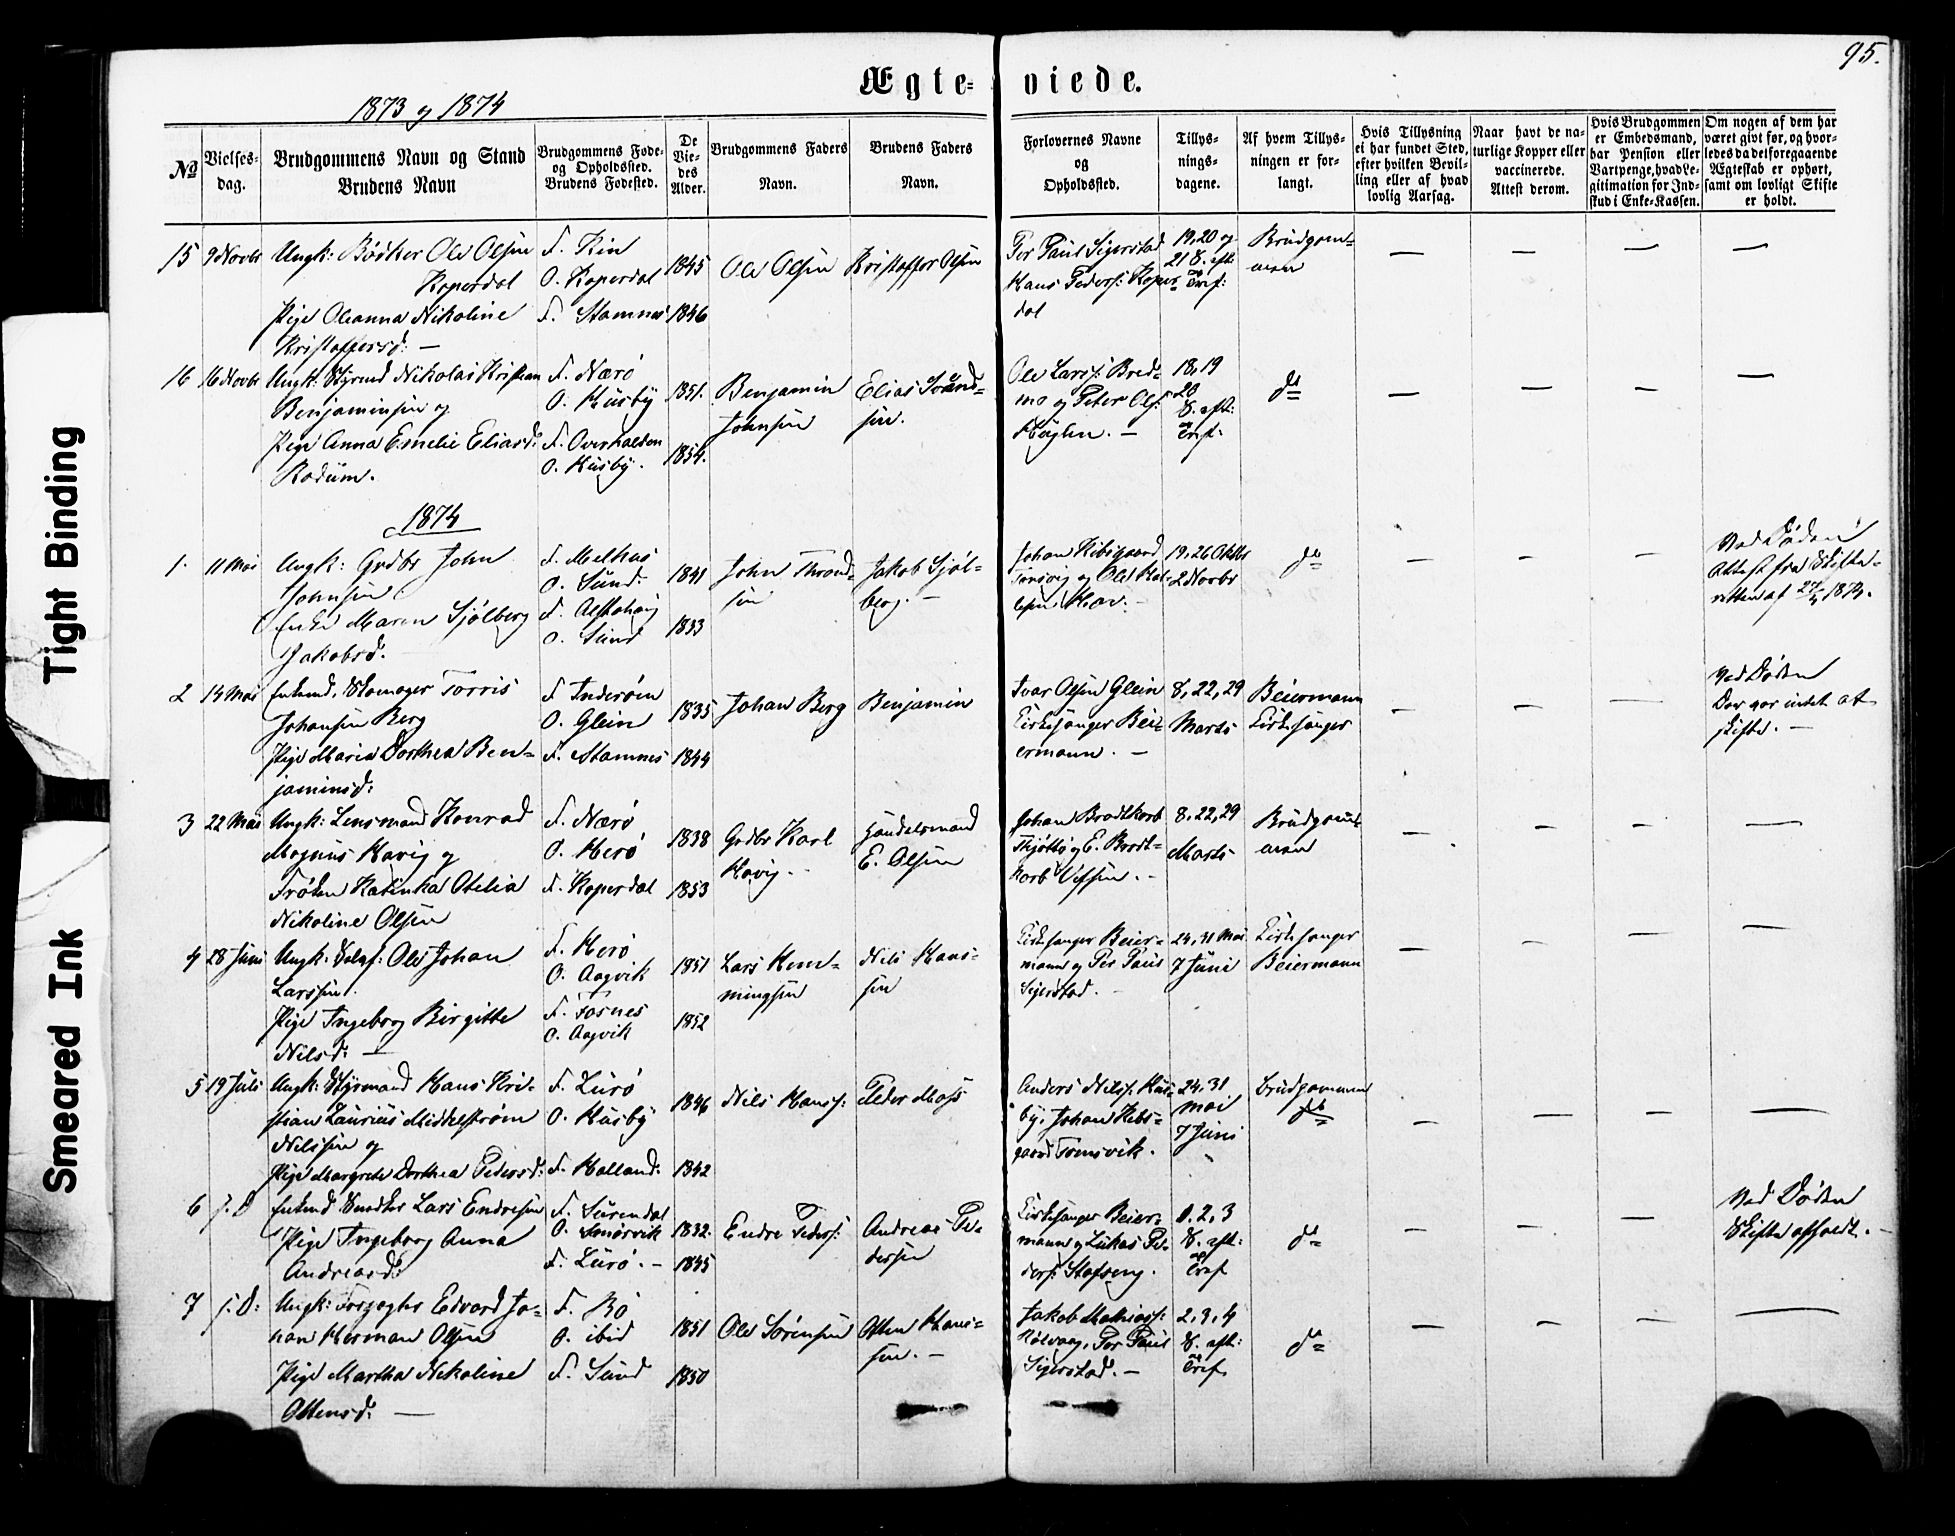 95.
Ægte-viede.
1873 og 1874
№
Vielses-
dag.
Brudgommens Navn og Stand
Brudens Navn
Brudgommens Føde-
og Opholdssted.
Brudens Fødested.
De
Vie-
des
Alder.
Brudgommens Faders
Navn.
Brudens Faders
Navn.
Forlovernes Navne
og
Opholdssted.
Tillys-
nings-
dagene.
Af hvem Tillys-
ningen er for-
langt.
Hvis Tillysning
ei har fundet Sted,
efter hvilken Bevil-
ling eller af hvad
lovlig Aarsag.
Naar havt de na-
turlige Kopper eller
vaccinerede.
Attest derom.
Hvis Brudgommen
er Embedsmand,
har Pension eller
Vartpenge, hvad Le-
gitimation for Ind-
skud i Enke-Kassen.
Om nogen af dem har
været givt før, og hvor-
ledes da det foregaaende
Ægteskab er ophørt,
samt om lovligt Skifte
er holdt.
15
9 Novbr
Ungk: Bødker Ole Olsen
Koperdal
Pige Oleanna Nikoline
Kristoffersd: —
F. Rin
O. Koperdal
F. Stamnes
1845
1846
Ole Olsen
Kristoffer Olsen
Per Paul Sigerstad
Hans Peders: Koper-
dal
19, 20 og
21 S. eft:
Tref:
Brudgom-
men
— — — —
16
16 Novbr
Ungk: Styrmd Nikolai Kristian
Benjaminsen og
Pige Anna Emelie Eliasd:
Rødum.
F. Nærø
O. Husby
F. Overhalden
O. Husby.
1851.
1854.
Benjamin
Johnsen
Elias Svend-
sen.
Ole Larss: Bred-
mo og Peter Ols:
Høglen. —
18, 19
20
S. eft:
Tref:
do
— — — —
1874
1.
11 Mai
Ungk: Gdbr John
Johnsen
Enke Maren Sjølberg
Jakobsd.
F. Melhus
O. Sund.
F. Alstahoug
O. Sund
1841
1833
John Thrond-
sen
Jakob Sjøl-
berg. —
Johan Hibsgaard
Tomsvig og Ole Kal-
lesen Hav. —
19, 26 Oktbr
2 Novbr
do
— — —
Ved Døden
Attest fra Skifte-
retten af 27/4 1874.
2
14 Mai
Enkemd. Skomager Torris
Johansen Berg
Pige Maria Dorthea Ben-
jaminsd:
F. Inderøen
O. Glein
F. Stamnes
1835
1844
Johan Berg
Benjamin
Ivar Olsen Glein
Kirkesanger Bei-
ermann. —
8, 22, 29
Marts
Beiermann
Kirkesanger
— — —
Ved Døden
Der var intet at
skifte. —
3
22 Mai
Ungk: Lensmand Konrad
Magnus Havig og
Frøken Katinka Otelia
Nikoline Olsen
F. Nærø
O. Herø
F. Koperdal
1838
1853
Gdbr Karl
Havig.
Handelsmand
E. Olsen
Johan Brodtkorb
Thjøttø og E. Brodt-
korb Vefsen. —
8, 22, 29
Marts
Brudgom-
men
— — — —
4
28 Juni
Ungk: Selvf: Ole Johan
Larssen.
Pige Ingeborg Birgitte
Nilsd: —
F. Herø
O. Aagvik
F. Fosnes
O. Aagvik
1851
1852
Lars Hem-
mingsen
Nils Hans-
sen
Kirkesanger Beier-
mann og Per Paul
Sigerstad.
24, 31 Mai
7 Juni
Kirkesanger
Beiermann
— — — —
5
19 Juli
Ungk: Styrmand Hans Kri-
stian Laurius Middelstrøm
Nilssen og
Pige Margrete Dorthea Pedersd:
F. Lurø
O. Husby
F. Halland.
1846
1842
Nils Hanss:
Peder Moss
Anders Nilss: Hus-
by. Johan Hibs-
gaard Tomsvik.
24, 31
Mai
7 Juni
Brudgommen
do
— — — —
6
s. D
Enkemd Snedker Lars Endresen
Pige Ingeborg Anna
Andreasd:
F. Surendal
O. Smørvik
F. Lurø. —
1832.
1845
Endre Peders:
Andreas Pe-
dersen
Kirkesanger Beier-
mann og Lukas Pe-
ders: Stofseng.
1. 2, 3
S. eft:
Tref
do
— — —
Ved Døden
Skifte afholdt. —
7
s. D:
Ungk: Forpagter Edvard Jo-
han Herman Olsen
Pige Martha Nikoline
Ottensd: —
F. Bø
O. ibid
F. Sund
1851
1850
Ole Sørensen
Otten Hans-
sen. —
Jakob Mathiass:
Kølvaag, Per Paul
Sigerstad. —
2, 3, 4
S. eft:
Tref
do
— — — —
Tight Binding
Smeared Ink